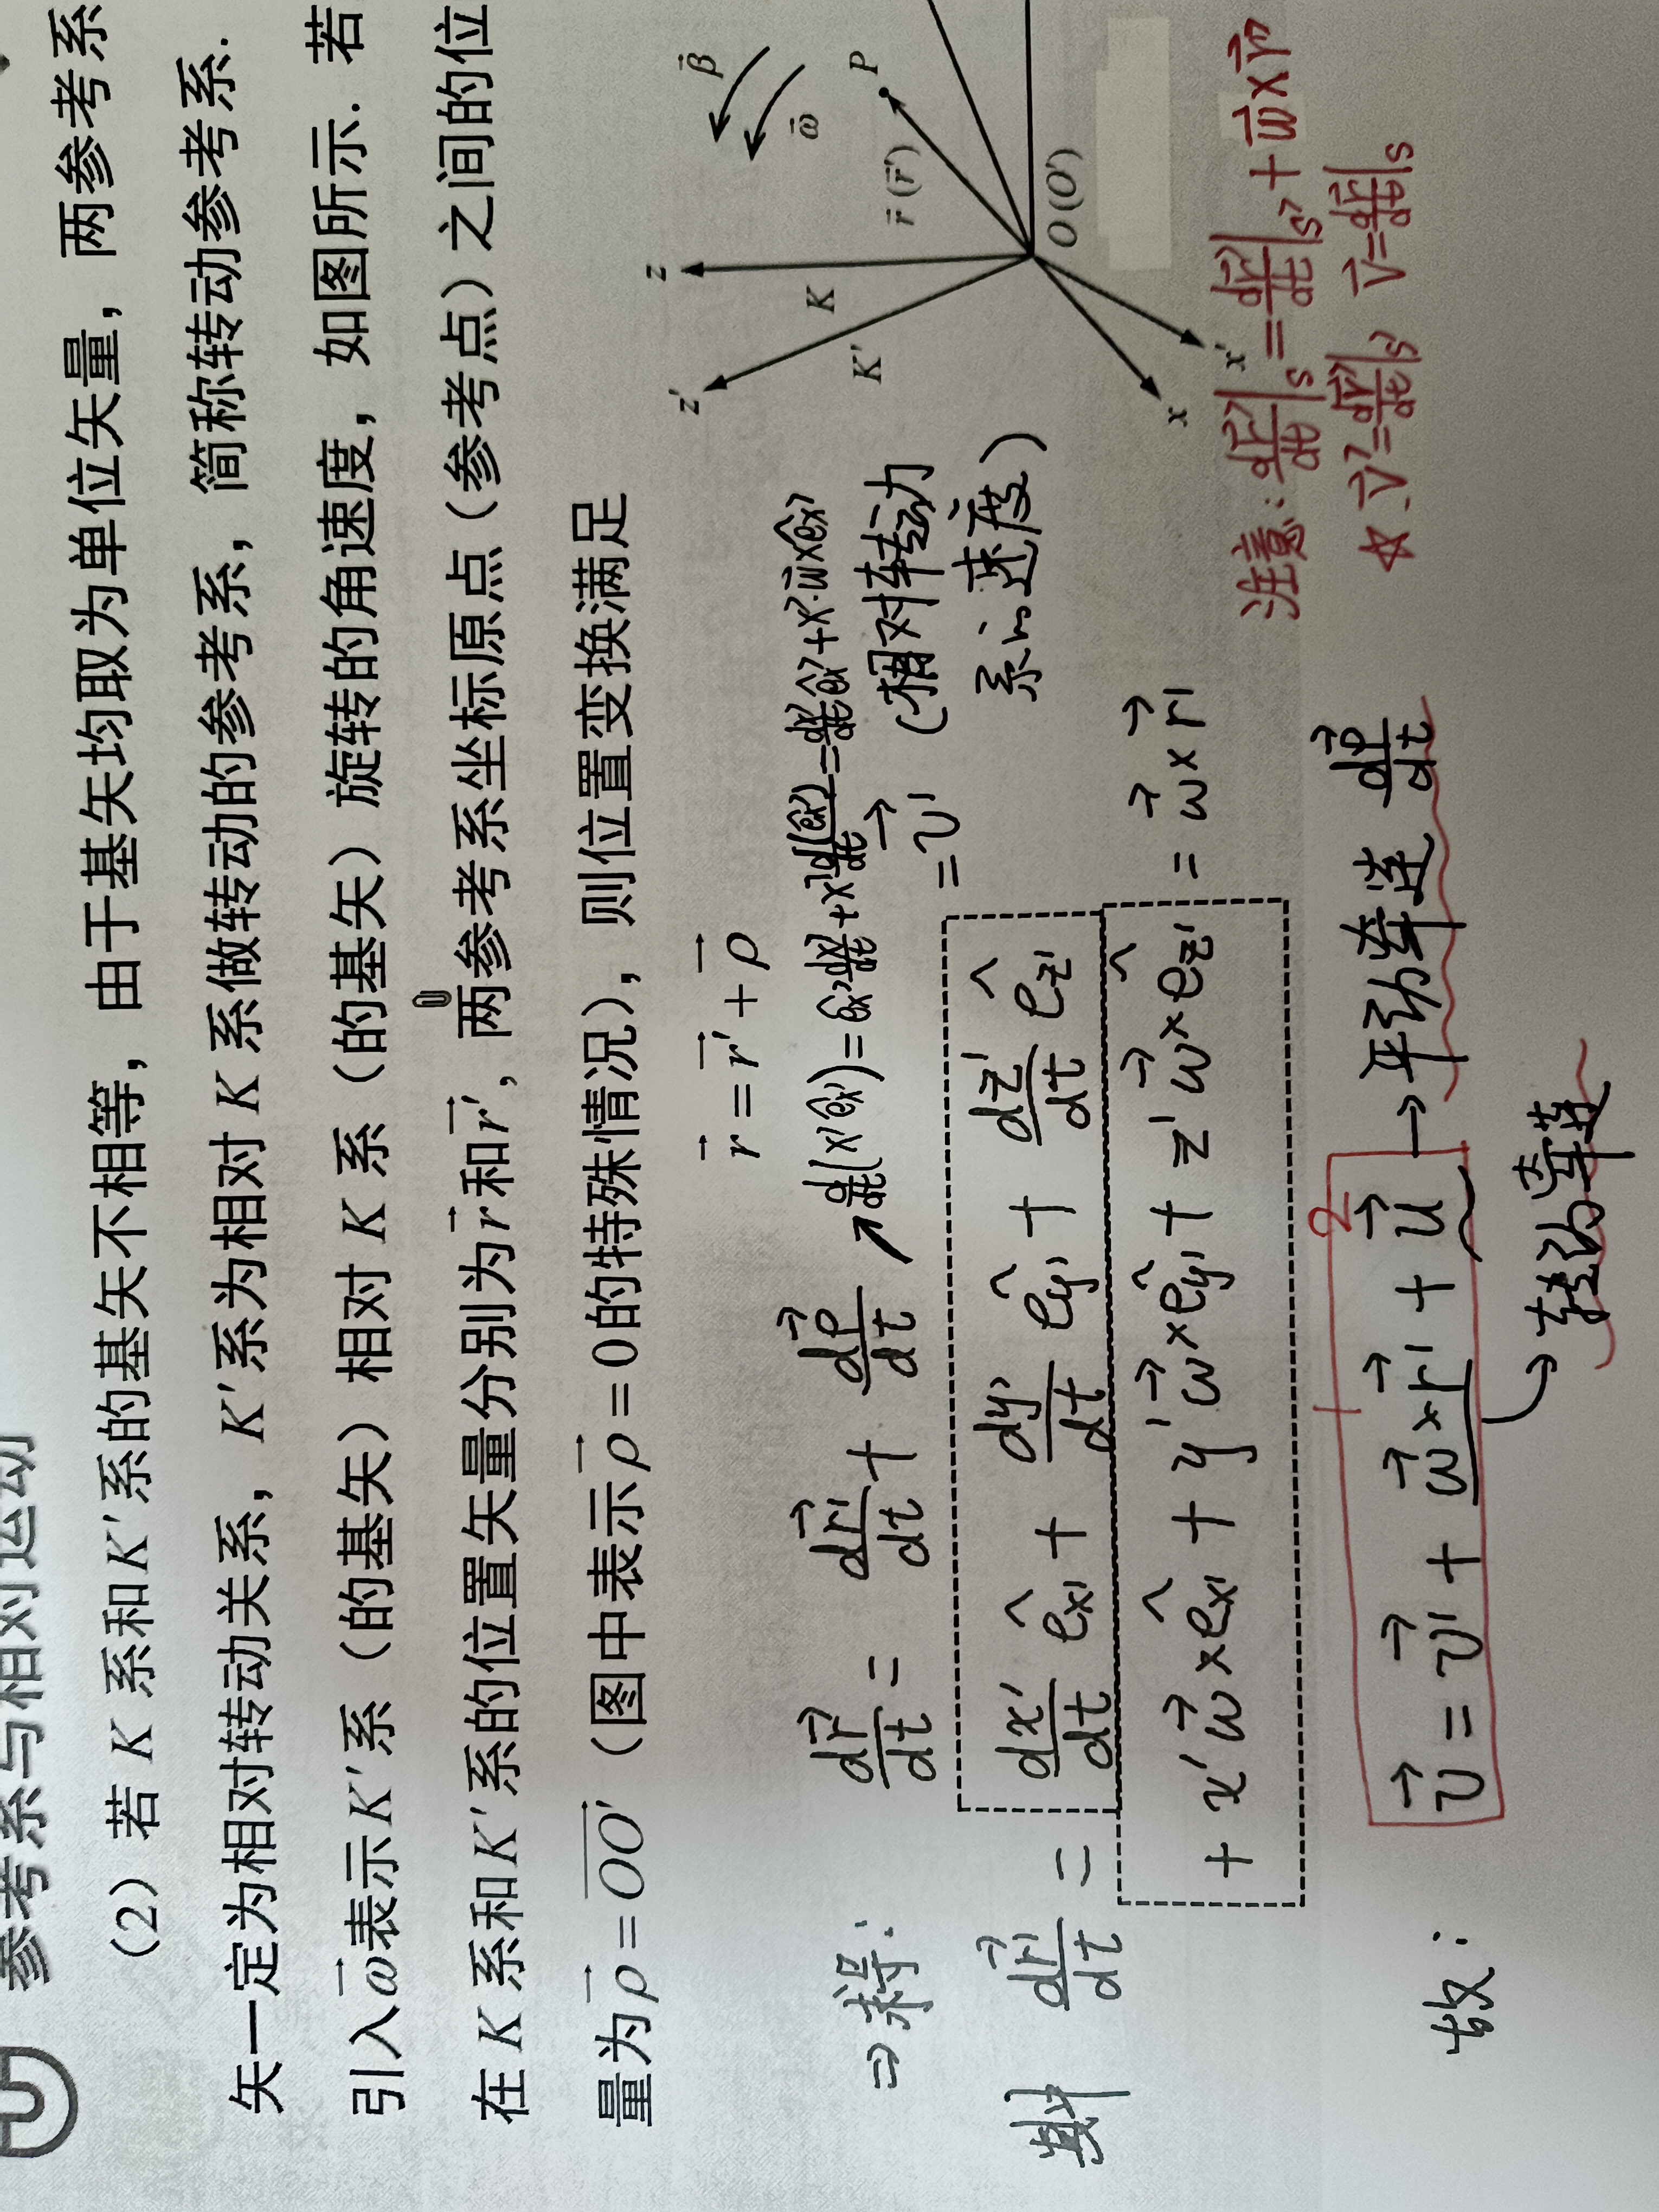 参考系与相对运动
（2）若 K 系和K′系的基矢不相等，由于基矢均取为单位矢量，两参考系
矢一定为相对转动关系，K′系为相对 K 系做转动的参考系，简称转动参考系.
引入ω⃗表示K′系（的基矢）相对 K 系（的基矢）旋转的角速度，如图所示. 若
在 K 系和K′系的位置矢量分别为r⃗和r⃗′，两参考系坐标原点（参考点）之间的位
量为ρ⃗=OO′⃗（图中表示ρ⃗=0的特殊情况），则位置变换满足
r⃗=r⃗′+ρ⃗
⇒求得: dr⃗/dt = dr⃗′/dt + dρ⃗/dt
↗ d/dt(x′êx′)=êx′·dx′/dt+x′d(êx′)/dt=dx′/dt êx′+x′·ω⃗×êx′
其中 dr⃗′/dt = dx′/dt êx′ + dy′/dt êy′ + dz′/dt êz′ = v⃗′ （相对转动
系的速度）
+ x′ω⃗×êx′ + y′ω⃗×êy′ + z′ω⃗×êz′ = ω⃗×r⃗′
故: v⃗ = v⃗′ + ω⃗×r⃗′ + u⃗ → 平动牵连 dρ⃗/dt
1 2
↪ 转动牵连
注意: dr⃗′/dt|s = dr⃗′/dt|s′ + ω⃗×r⃗′
☆. v⃗′=dr⃗′/dt|s′ v⃗=dr⃗/dt|s
z′
z
K′
K
β⃗
ω⃗
P
r⃗(r⃗′)
O(O′)
x
x′